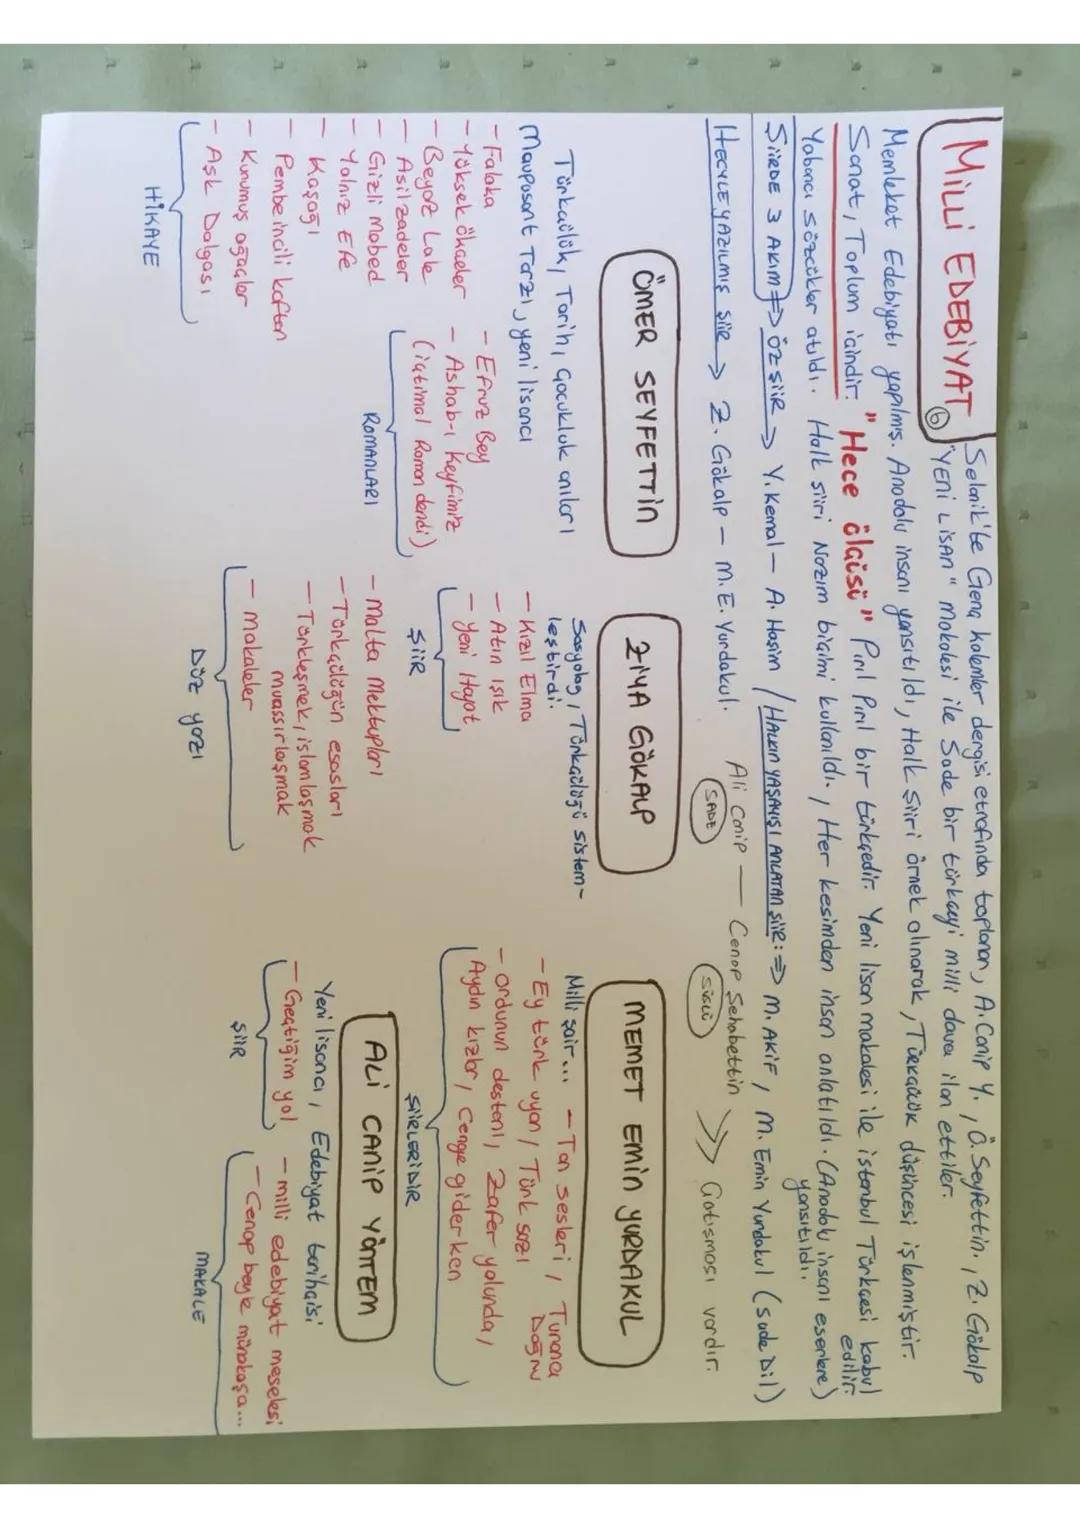 MİLLİ EDEBİYAT ⑥
Selanik'te Genç kalemler dergisi etrafında toplanan, A.Canip Y., Ö.Seyfettin, Z. Gökalp
"YENİ LİSAN" makalesi ile Sade bir türkçeyi milli dava ilan ettiler.
Memleket Edebiyatı yapılmış. Anadolu insanı yansıtıldı, Halk şiiri örnek alınarak, TÜRKÇÜLÜK düşüncesi işlenmiştir.
Sanat, Toplum içindir. "Hece ölçüsü" Pırıl Pırıl bir türkçedir. Yeni lisan makalesi ile istanbul Türkçesi kabul edilir.
Yabancı sözcükler atıldı. Halk şiiri Nazım biçimi kullanıldı., Her kesimden insan anlatıldı. (Anadolu insanı eserlere yansıtıldı.)
ŞİİRDE 3 AKIM => ÖZ ŞİİR -> Y. Kemal - A. Haşim / HALKIN YAŞAYIŞI ANLATAN ŞİİR: => M. AKİF, M. Emin Yurdakul (sade Dil)
HECEYLE YAZILMIŞ ŞİİR -> Z. Gökalp - M. E. Yurdakul.
Ali Canip — Cenap Şehabettin >> Çatışması vardır.
SADE
SÜSLÜ
ÖMER SEYFETTİN
Türkçülük, Tarih, Çocukluk anıları
Maupasant Tarzı, yeni lisancı
- Falaka
- Yüksek ökçeler
- Beyaz Lale
- Asilzadeler
- Gizli Mabed
- Yalnız Efe
- Kaşağı
- Pembe incili kaftan
- Kurumuş ağaçlar
- Aşk Dalgası
HİKAYE
- Efruz Bey
- Ashab-ı Keyfimiz
(içtimai Roman dendi)
ROMANLARI
ZİYA GÖKALP
Sosyolog, Türkçülüğü sistem-
leştirdi.
- Kızıl Elma
- Altın ışık
- Yeni Hayat
ŞİİR
- Malta Mektupları
- Türkçülüğün esasları
- Türkleşmek, islamlaşmak
muassırlaşmak
- makaleler
DÜZ yazı
MEMET EMİN YURDAKUL
Milli şair... - Tan sesleri, Turana Doğru
- Ey türk uyan, Türk sazı
- ordunun destanı, Zafer yolunda,
Aydın kızları, Cenge giderken
ŞİİRLERİDİR
ALİ CANİP YÖNTEM
Yeni lisancı, Edebiyat tarihçisi
- Geçtiğim yol
ŞİİR
- milli edebiyat meselesi
- Cenap beyle münakaşa...
MAKALE